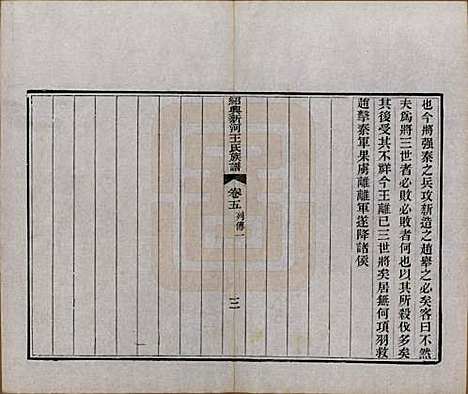 也今將强秦之兵攻新造之趙舉之必矣客曰不然
夫爲將三世者必敗必敗者何也以其所殺伐多矣
其後受其不祥今王離已三世將矣居無何項羽救
趙擊秦軍果虜離離軍遂降諸侯
紹興新河王氏族譜
卷五
列傳一
三